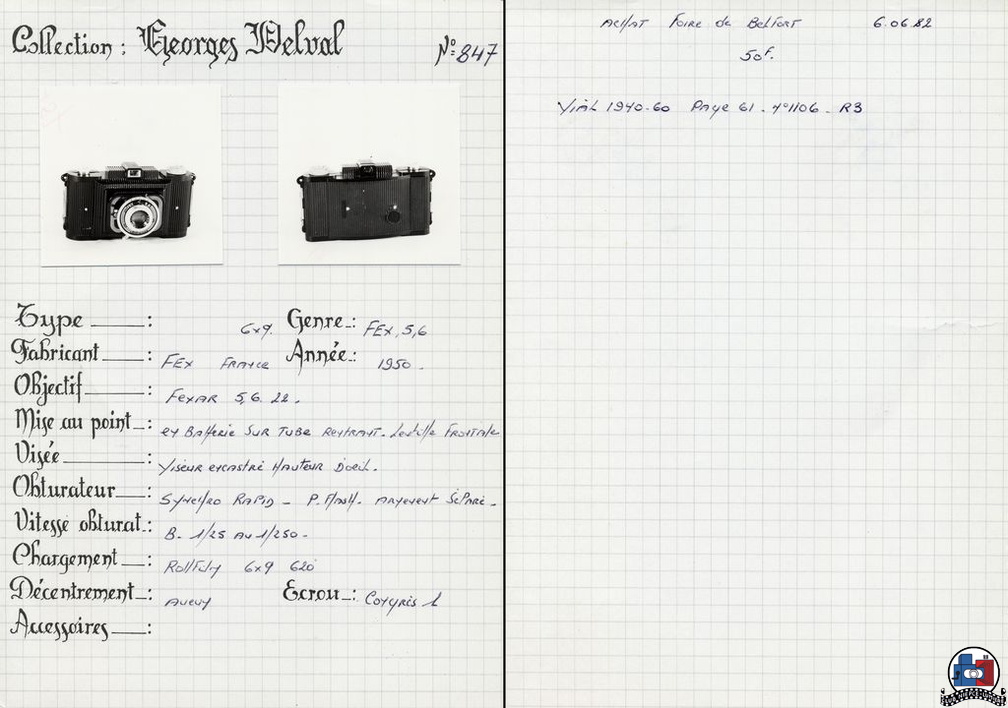 Collection : Georges Delval N°: 847
Type : 6x9. Genre : FEX, 5,6
Fabricant : FEX FRANCE Année : 1950.
Objectif : FEXAR 5,6. 22.
Mise au point : en Batterie SUR TUBE RENTRANT. Lentille FRONTALE
Visée : Viseur encastré Hauteur D'oeil.
Obturateur : Synchro RAPID - P. Flash. Armement SéParé.
Vitesse obturat. : B. 1/25 AU 1/250.
Chargement : Rollfilm 6x9 620
Décentrement : Aucun Ecrou : Congrès 1
Accessoires :
ACHAT Foire de Belfort 6.06 82
50F.
Vial 1940.60 Page 61. n°1106. R3